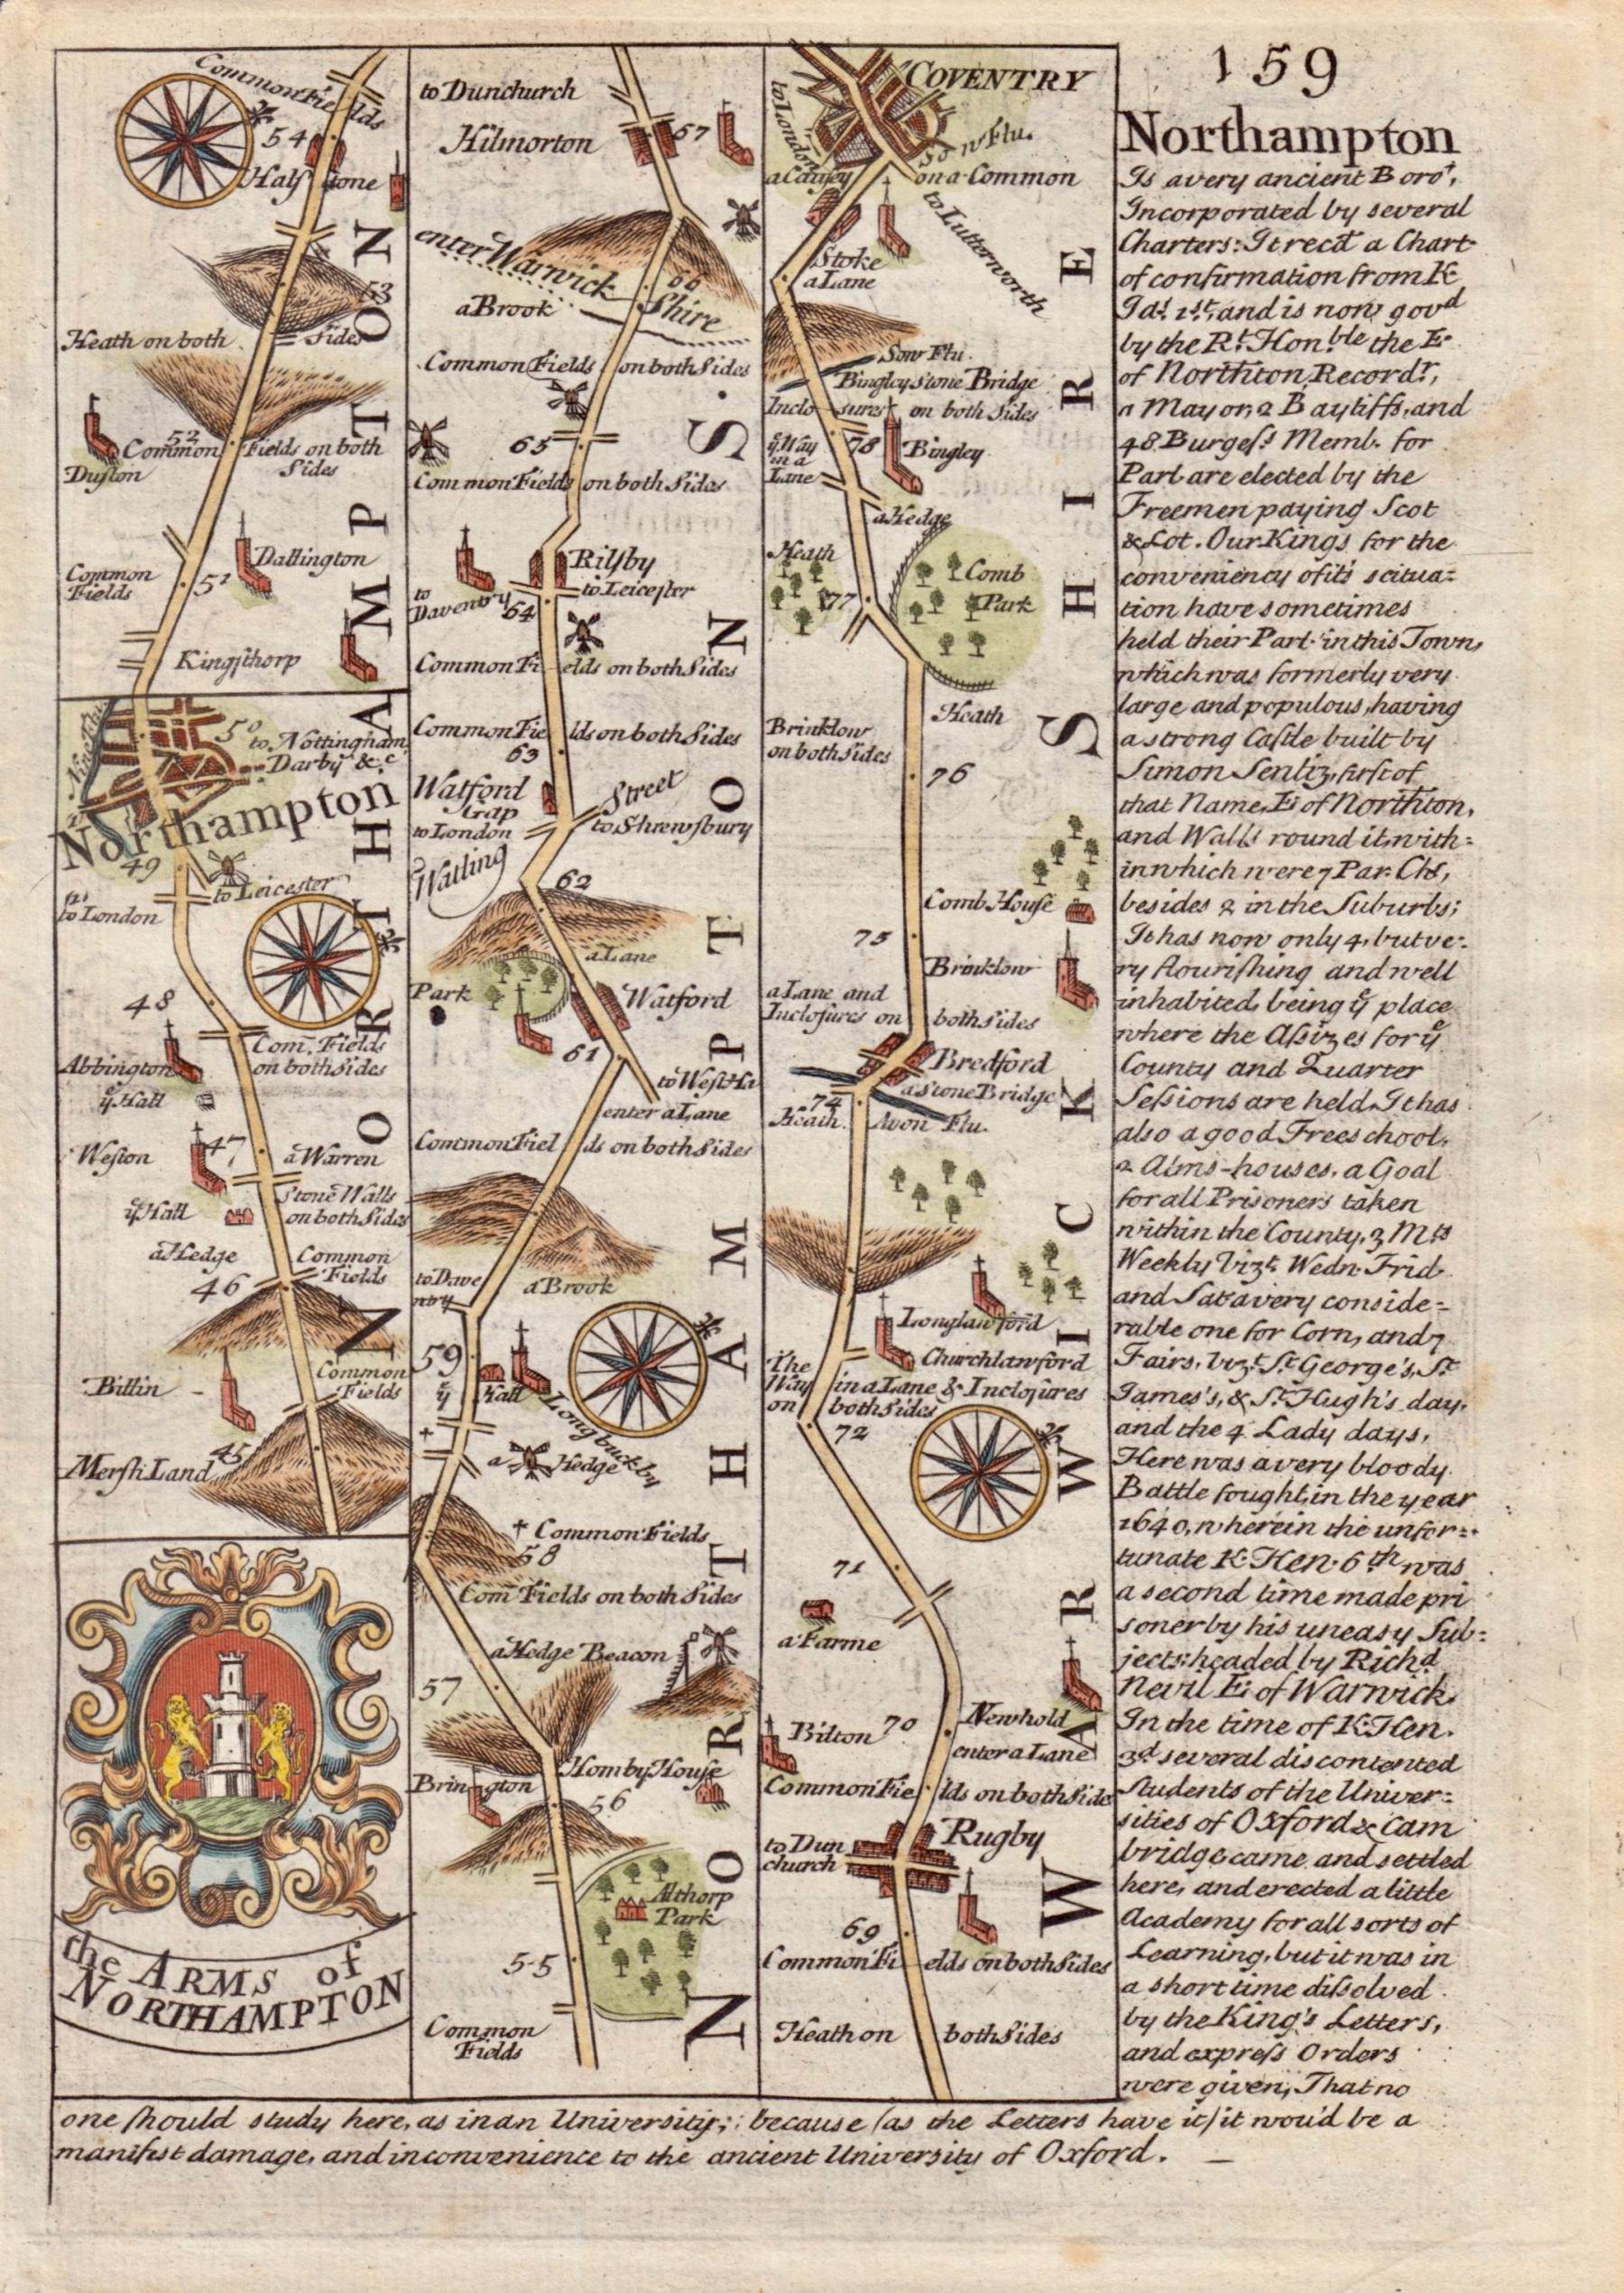 159
Northampton
Is a very ancient Boro^t,
Incorporated by several
Charters: It rec^d a Chart
of confirmation from K
Ja^s. 1^st. and is now gov^d
by the R^t. Hon^ble the E.
of Northton, Record^r,
a Mayor, 2 Bayliffs, and
48 Burgeſs Memb. for
Parl. are elected by the
Freemen paying Scot
& Lot. Our Kings for the
conveniency of it's scitua=
tion have sometimes
held their Parl. in this Town,
which was formerly very
large and populous, having
a strong Caſtle built by
Simon Senliz, firſt of
that Name, E. of Northton,
and Walls round it, with=
in which were 7 Par. Chs,
besides 2 in the Suburbs;
It has now only 4, but ve=
ry flouriſhing and well
inhabited, being y^e place
where the Aſsizes for y^e
County and Quarter
Seſsions are held, It has
also a good Free school,
2 Alms-houses, a Goal
for all Prisoners taken
within the County, 3 M^kts
Weekly Viz^t. Wedn. Frid.
and Sat. a very conside=
rable one for Corn, and 7
Fairs, Viz^t. S^t. George's, S^t.
James's, & S^t. Hugh's day,
and the 4 Lady days,
Here was a very bloody
Battle fought, in the year
1640, wherein the unfor=
tunate K. Hen. 6^th was
a second time made pri
soner by his uneasy Sub=
jects: headed by Rich^d
Nevil E. of Warwick.
In the time of K. Hen.
3^d several discontented
Students of the Univer=
sities of Oxford & Cam
bridge came and settled
here, and erected a little
Academy for all sorts of
Learning, but it was in
a short time diſsolved
by the King's Letters,
and expreſs Orders
were given, That no
one ſhould study here, as in an University; because (as the Letters have it) it wou'd be a
manifest damage, and inconvenience to the ancient University of Oxford.
Common Fields
54
Halſtone
53
Heath on both Sides
52
Common Fields on both
Sides
Duſton
Dallington
Common
Fields
51
Kingſthorp
NORTHAMPTON
50
to Nottingham
Darby &c
Northampton
49
to Leicester
to London
48
Com. Fields
on both Sides
Abbington
y^e Hall
Weſton
47
a Warren
Stone Walls
on both Sides
y^e Hall
a Hedge
Common
Fields
46
Common
Fields
Billin
45
Merſh Land
the ARMS of
NORTHAMPTON
to Dunchurch
Hilmorton
67
enter Warwick Shire
66
a Brook
Common Fields on both Sides
65
Common Fields on both Sides
Rilſby
to Leiceſter
to
Daventry
64
Common Fields on both Sides
Common Fields on both Sides
63
Watford
Gap
Street
to London
to Shrewſbury
Watling
62
a Lane
Park
Watford
61
to Weſt Ha
enter a Lane
Common Fields on both Sides
to Dave
ntry
a Brook
59
y^e Hall
Longbuckby
a Hedge
Common Fields
58
Com Fields on both Sides
a Hedge Beacon
57
Homby Houſe
Brington
56
Althorp
Park
55
Common
Fields
NORTHAMPTONS.
COVENTRY
to London
Sow Flu.
a Causey
on a Common
to Lutterworth
Stoke
a Lane
Sow Flu.
Bingley Stone Bridge
Incloſures on both Sides
y^e Way
in a
Lane
78
Bingley
a Hedge
Heath
Comb
Park
77
Heath
Brinklow
on both Sides
76
Comb Houſe
75
Brinklow
a Lane and
Incloſures on both Sides
Bredford
a Stone Bridge
74
Heath
Avon Flu.
Longlawford
Churchlawford
The
Way in a Lane & Incloſures
on both Sides
72
71
a Farme
Newhold
Bilton
70
enter a Lane
Common Fields on both Side
Rugby
to Dun
church
69
Common Fields on both Sides
Heath on both Sides
WARWICK SHIRE